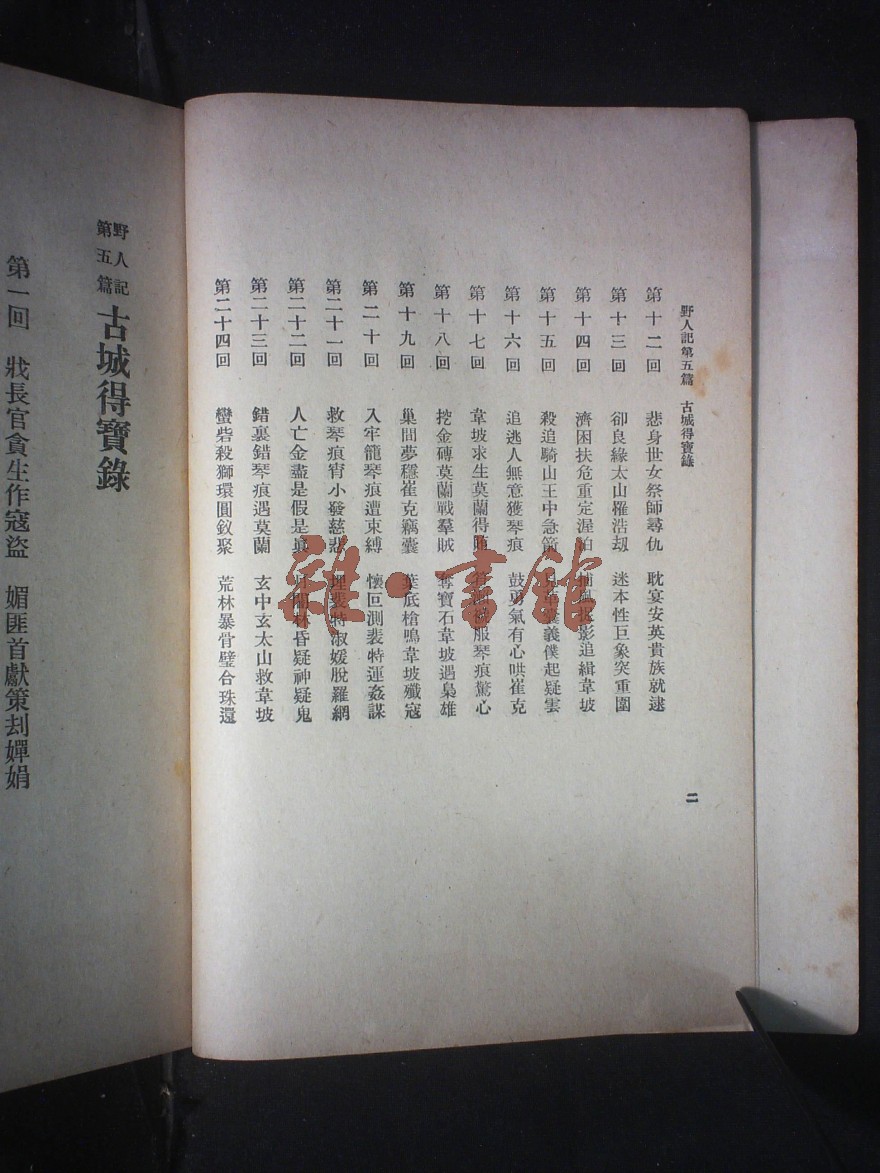 野人記第五篇 古城得寶錄
第十二回 悲身世女祭師尋仇 耽宴安英貴族就逮
第十三回 卻良緣太山罹浩刼 迷本性巨象突重圍
第十四回 濟困扶危重定渥泊 捕風捉影追緝韋坡
第十五回 殺追騎山王中急箭 義僕起疑雲
第十六回 追逃人無意獲琴痕 鼓勇氣有心哄崔克
第十七回 韋坡求生莫蘭得賄 服琴痕驚心
第十八回 挖金磚莫蘭戰羣賊 奪寶石韋坡遇梟雄
第十九回 巢間夢穩崔克竊囊 葉底槍鳴韋坡殲寇
第二十回 入牢籠琴痕遭束縛 懷叵測裴特運姦謀
第二十一回 救琴痕宵小發慈悲 埋裴特淑媛脫羅網
第二十二回 人亡金盡是假是眞 月闇林昏疑神疑鬼
第二十三回 錯裏錯琴痕遇莫蘭 玄中玄太山救韋坡
第二十四回 蠻砦殺獅環圓釵聚 荒林暴骨璧合珠還
二
野人記
第五篇
古城得寶錄
第一回 戕長官貪生作寇盜 媚匪首獻策刦嬋娟
雜·書館